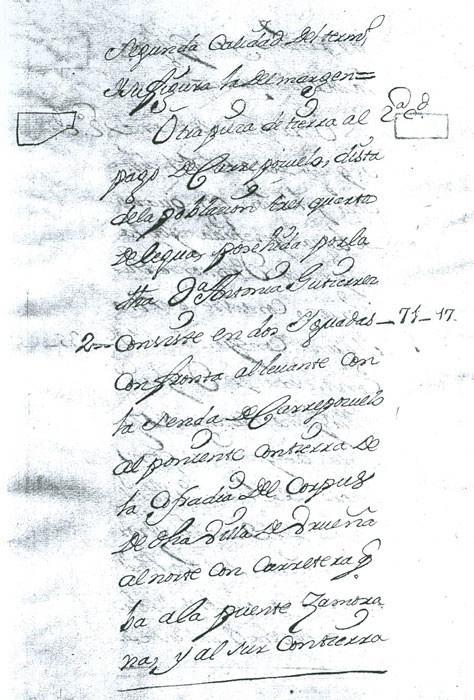 Segunda Calidad del term.º
Su figura la del margen =
Otra pieza de tierra al 2ª
pago de Carrepozuelo, dista
de la población tres quartos
de legua, posehida por la
dha Dª Antonia Gutierrez
2= Consiste en dos Yguadas - 71 - 17.
Confronta al levante con
la senda de Carrepozuelo
al poniente con tierra de
la Cofradia del Corpus
de dha Villa de Urueña
al norte con Carretera q
ba a la puente Zamora
na, y al sur Con tierra